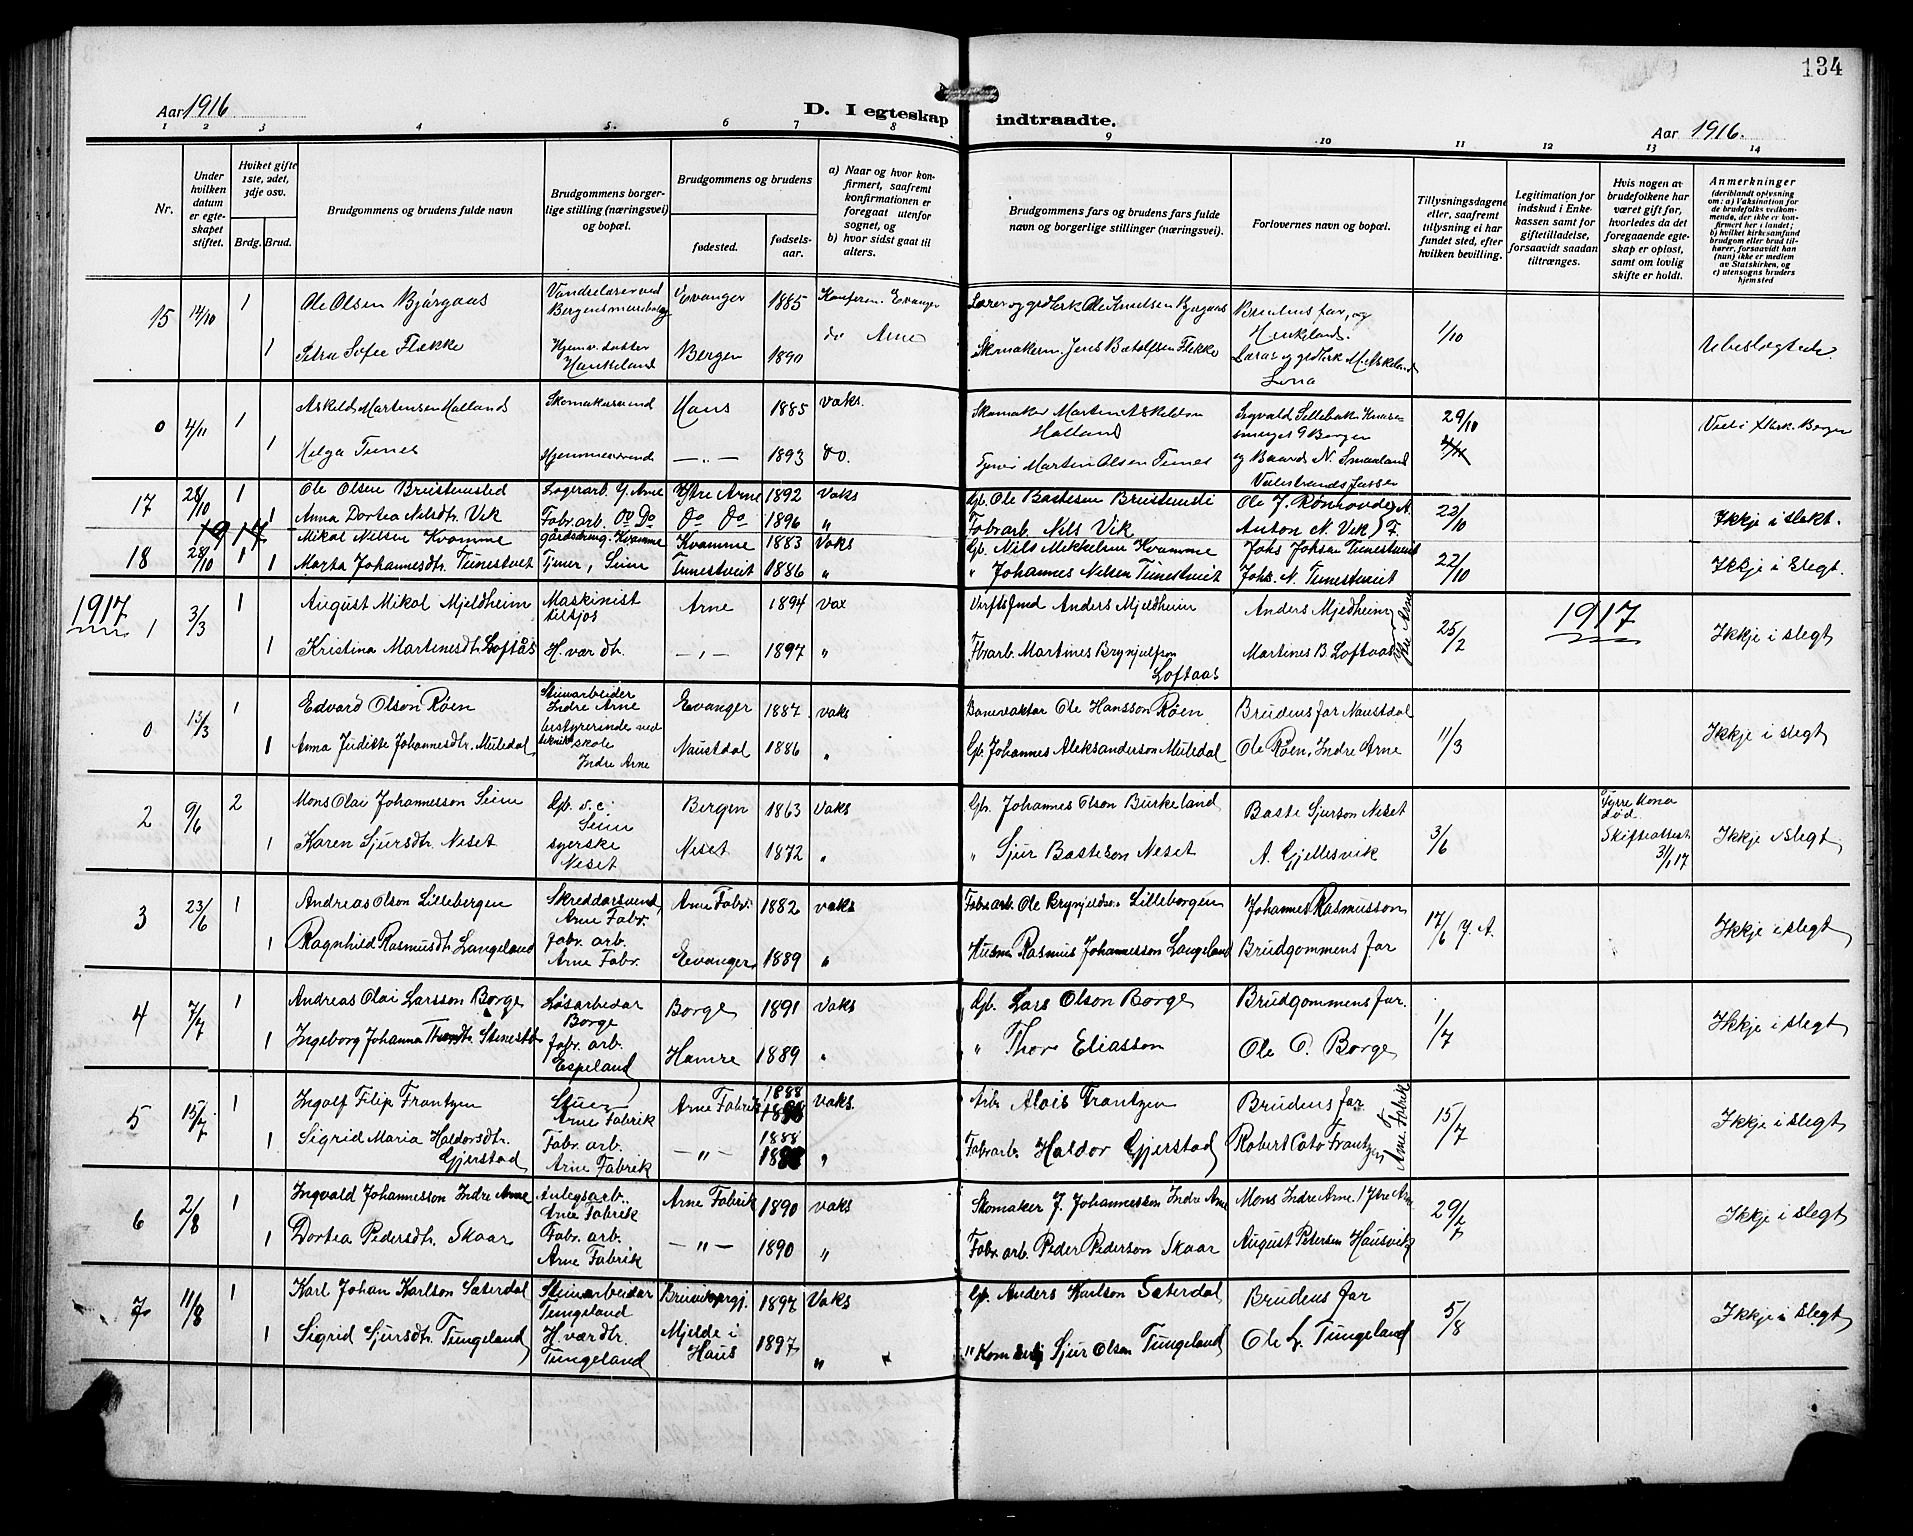 134
Aar 1916
D. I egteskap indtraadte.
Aar 1916.
1 2 3 4 5. 6 7 8 9 10 11 12 13 14
Nr.
Under hvilken datum er egteskapet stiftet.
Hvilket gifte 1ste, 2det, 3dje osv.
Brdg. Brud.
Brudgommens og brudens fulde navn
Brudgommens borgerlige stilling (næringsvei) og bopæl.
Brudgommens og brudens
fødested.
fødselsaar.
a) Naar og hvor konfirmert, saafremt konfirmationen er foregaat utenfor sognet, og
b) hvor sidst gaat til alters.
Brudgommens fars og brudens fars fulde navn og borgerlige stillinger (næringsvei).
Forlovernes navn og bopæl.
Tillysningsdagene eller, saafremt tillysning ei har fundet sted, efter hvilken bevilling.
Legitimation for indskud i Enkekassen samt for giftetilladelse, forsaavidt saadan tiltrænges.
Hvis nogen av brudefolkene har været gift før, hvorledes da det foregaaende egteskap er opløst, samt om lovlig skifte er holdt.
Anmerkninger (deriblandt oplysning om: a) Vaksination for de brudefolks vedkommende, der ikke er konfirmert her i landet; b) hvilket kirkesamfund brudgom eller brud tilhører, forsaavidt han (hun) ikke er medlem av Statskirken, og c) utensogns bruders hjemsted
15 14/10 1 Ole Olsen Bjørgaas Vandrelærer ved Evanger 1885 Konferm. Evanger Lærer og grdbrk Ole Knudsen Bjørgaas Brudens far, og 1/10
Bergens do Arne Haukeland.
1 Petra Sofie Flække Hjemv. datter Haukeland Bergen 1890 Skomakerm. Jens Flekke Ubeslægtede
Lona
0 4/11 1 Askild Martensen Halland Skomakersvend Haus 1885 vaks. Skomaker Martin Askildsen Halland 29/10
1 Helga Tunes Hjemmeværend — „ — 1893 do. Martin Olsen Tunes og Baard N. Smaaland
17 28/10 1 Ole Olsen Breistensted Lagerarb. Y. Arne Ytre Arne 1892 Vaks Gb. Ole Bastesen Ole J. Rønhovde 22/10
1 Anna Dortea Nilsdtr. Vik Fabr. arb. Do Do Do Do 1896 „ Fabrarb. Nils Vik Anton N. Vik Ikkje i slekt.
1917
18 28/10 1 Mikal Nilsen Kvamme gårdsdreng. Kvamme Kvamme 1883 Vaks Gb. Nils Mikkelsen Kvamme Johs Johsen Tunestveit 22/10
1 Marta Johannesdtr. Tunestvet Tjener, Seim Tunestveit 1886 „ „ Johannes Nilsen Tunestveit Johs. N. Tunestveit Ikkje i Slegt.
1917 1 3/3 1 August Mikal Mjeldheim Maskinist tilsjøs Arne 1894 Vax Anders Mjeldheim Anders Mjeldheim 25/2 1917
1 Kristina Martinesdtr Loftås H. vær dtr. — „ — 1897 „ Fbrarb. Martines Brynjulfson Loftaas Martines B. Loftaas Ytre Arne Ikkje i slegt
0 13/3 1 Edvard Olson Røen Stenarbeider Indre Arne Evanger 1887 vaks Banevaktar Ole Hansson Røen Brudens far Naustdal 11/3
1 Anna Juditte Johannesdtr. Muledal bestyrerinde ved skole Indre Arne Naustdal 1886 „ Gb. Johannes Aleksanderson Muledal Ole Røen. Indre Arne Ikkje i slegt
2 9/6 2 Mons Olai Johannesson Seim Gb. Seim Bergen 1863 Vaks Gb. Johannes Olson Burkeland Baste Sjurson Neset 3/6 Fyrre kona død. Skifteattest
1 Karen Sjursdtr. Neset syerske Neset Neset 1872 „ „ Sjur Basteson Neset A. Gjellesvik 31/1 17 Ikkje i slegt
3 23/6 1 Andreas Olson Lillebergen Skreddarsvend Arne Fabr. Arne Fabr. 1882 vaks Fabrarb. Ole Brynjelds. Lillebergen Johannes Rasmusson 17/6 Y. A.
1 Ragnhild Rasmusdtr Langeland fabr. arb. Arne Fabr. Evanger 1889 „ Husm Rasmus Johannesson Langeland Brudgommens far Ikkje i slegt
4 7/7 1 Andreas Olai Larsson Borge Løsarbeidar Borge Borge 1891 Vaks Gb. Lars Olson Borge Brudgommens far. 1/7
1 Ingeborg Johanna fabr. arb. Espeland Hamre 1889 „ „ Thor Eliasson Ole O. Borge Ikkje i slegt
5 15/7 1 Ingolf Filip Frantzen Stuer Arne Fabrik Arne Fabrik 1888 Vaks. Arb. Alois Frantzen Brudens far Arne Fabrik 15/7
1 Sigrid Maria Haldorsdtr. Gjerstad Fabr. arb. Arne Fabrik — „ — 1888 „ Fabrarb. Haldor Gjerstad Robert Cato Frantzen Ikkje i slegt
6 2/8 1 Ingvald Johannesson Indre Arne Anlegsarb. Arne Fabrik Arne Fabrik 1890 vaks Skomaker J. Johannesson Indre Arne Mons Indre Arne. 29/7
1 Dortea Pedersdtr. Skaar Fabr. arb. Arne Fabrik — „ — 1890 „ Fabr. arb. Peder Pederson Skaar August Petersen Hausvik Ikkje i slegt
7 11/8 1 Karl Johan Karlson Sæterdal Stenarbeidar Tungeland Bruviksprgj. 1897 Vaks Gb. Anders Karlson Sæterdal Brudens far 5/8
1 Sigrid Sjursdtr. Tungeland H. vær dtr. Tungeland Mjelde i Haus 1897 „ „ Sjur Olson Tungeland Ole L. Tungeland Ikkje i slegt